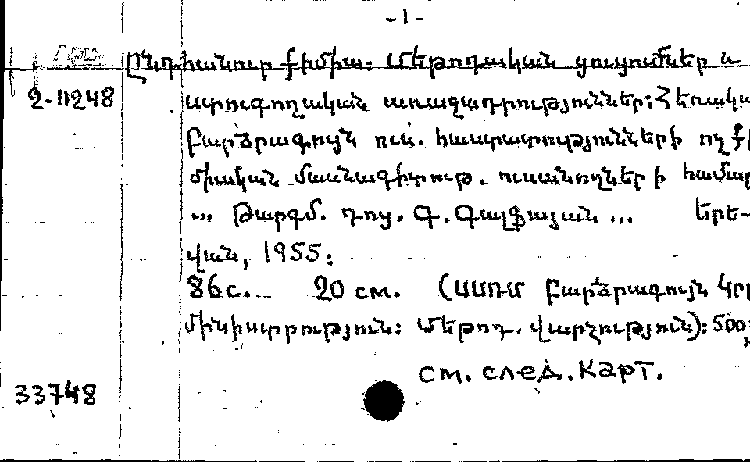 -1-
Ընդհանուր քիմիա: Մեթոդական ցուցումներ և
2-11248 ստուգողական առաջադրություններ: Հեռակա
բարձրագույն ուս. հաստատությունների ոչ քի
միական մասնագիտութ. ուսանողների համար
... Թարգմ. դոց. Գ. Գալֆայան ... Երե-
վան, 1955:
86с. 20 см. (ՍՍՌՄ բարձրագույն կրթ
մինիստրություն: Մեթոդ. վարչություն): 500
см. след. карт.
33748